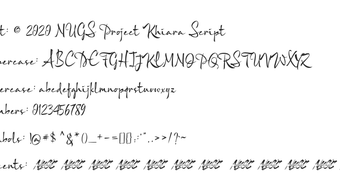 t: © 2020 NUGS Project Khiara Script
ercase: ABCDEFGHIJKLMNOPQRSTUVWXYZ
ercase: abcdefghijklmnopqrstuvwxyz
mbers: 0123456789
bols: !@#$ ^&*()_+-=[]{},:'"..>>/?~
ents: